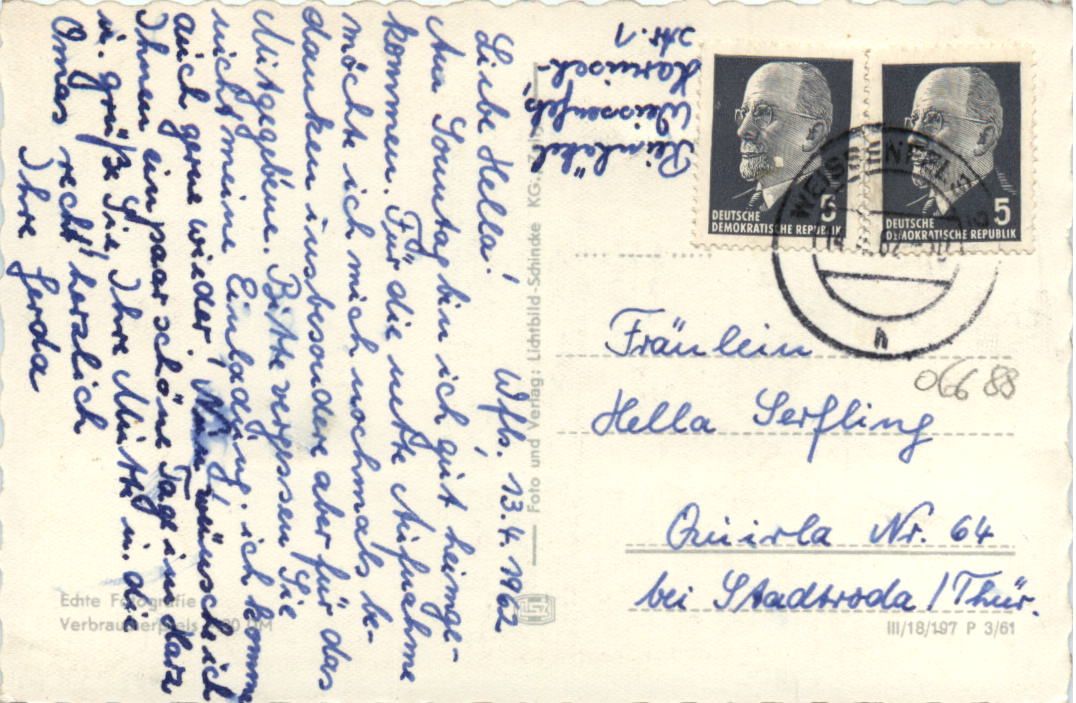 Wfls, 13.4.1962
Liebe Hella!
Am Sonntag bin ich gut heimge-
kommen. Für die nette Aufnahme
möchte ich mich nochmals be-
danken insbesondere aber für das
Mitgegebene. Bitte vergessen Sie
nicht meine Einladung, ich komme
auch gerne wieder! Nun wünsche ich
Ihnen ein paar schöne Tage im Harz
u. grüße Sie, Ihre Mutti u. die
Omas recht herzlich
Ihre Gerda
Weissenfels,
Nr. 1
DEUTSCHE
DEMOKRATISCHE REPUBLIK
5
DEUTSCHE
DEMOKRATISCHE REPUBLIK
5
WEISSENFELS
h
Fräulein
Hella Serfling
Quirla Nr. 64
bei Stadtroda/Thür.
06688
III/18/197 P 3/61
Foto und Verlag: Lichtbild-Schincke KG.
Echte Fotografie
Verbraucherpreis DM